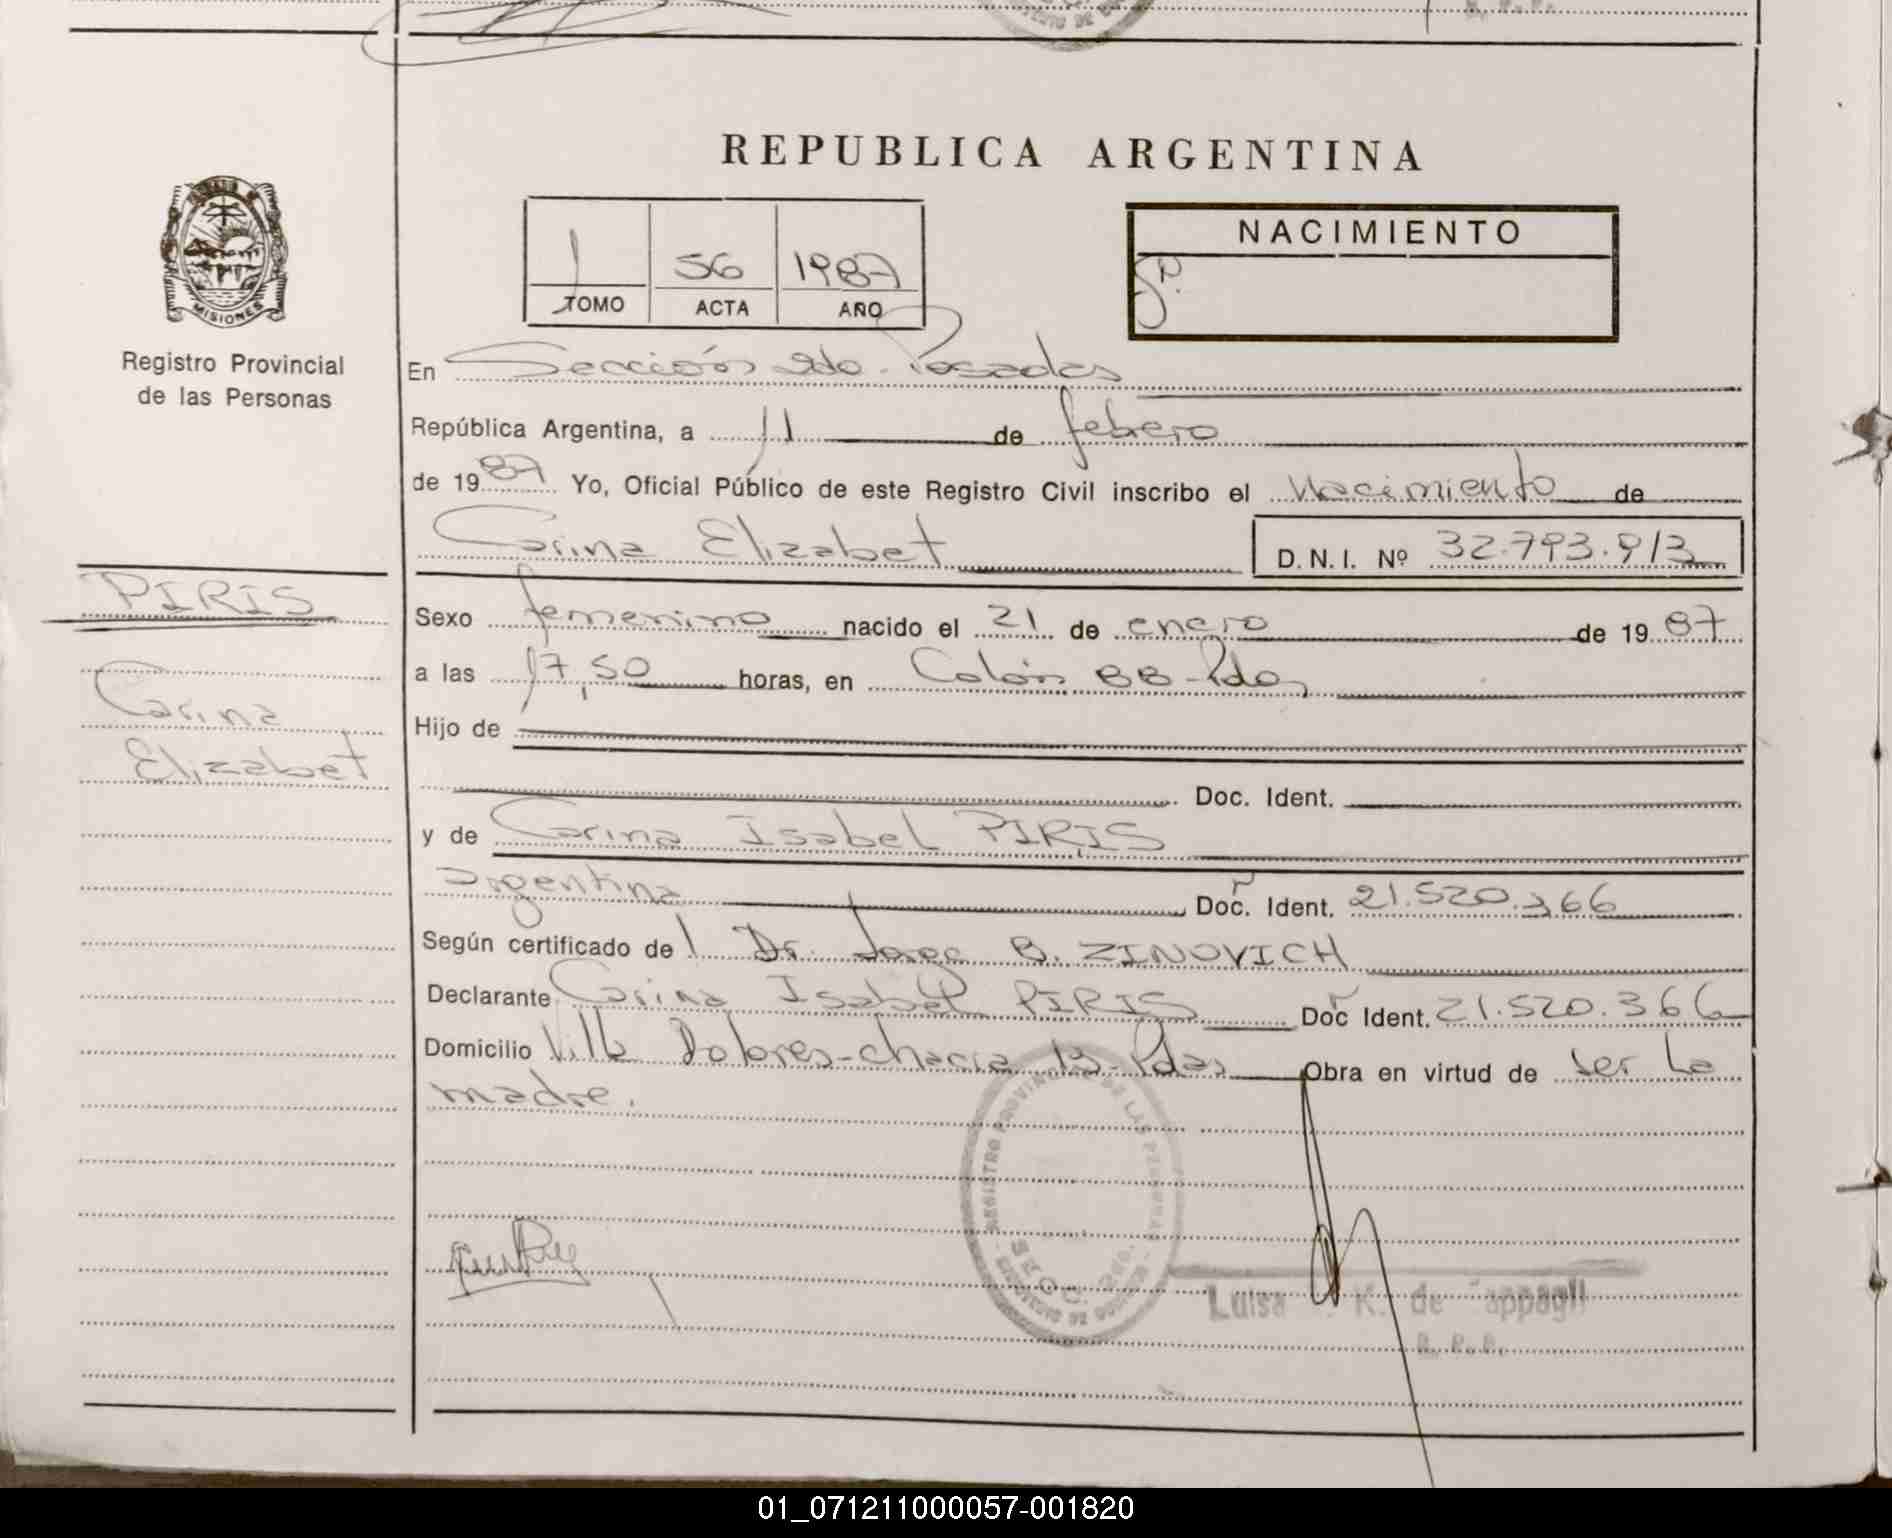 REPUBLICA ARGENTINA
MISIONES
Registro Provincial
de las Personas
1 56 1987
TOMO ACTA AÑO
NACIMIENTO
En Sección 2do. Posadas
República Argentina, a 11 de febrero
de 1987 Yo, Oficial Público de este Registro Civil inscribo el Nacimiento de
Carina Elizabet D.N.I. Nº 32.793.913
PIRIS
Carina
Elizabet
Sexo femenino nacido el 21 de enero de 1987
a las 17,50 horas, en Colón BB-Pdas
Hijo de
Doc. Ident.
y de Carina Isabel PIRIS
argentina Doc. Ident. 21.520.366
Según certificado de Dr. Jorge B. ZINOVICH
Declarante Carina Isabel PIRIS Doc Ident. 21.520.366
Domicilio Villa Dolores-chacra 13-Pdas Obra en virtud de ser la
madre.
REGISTRO PROVINCIAL DE LAS PERSONAS
SECC. 2do.
Luisa K. de
R. P. P.
01_071211000057-001820